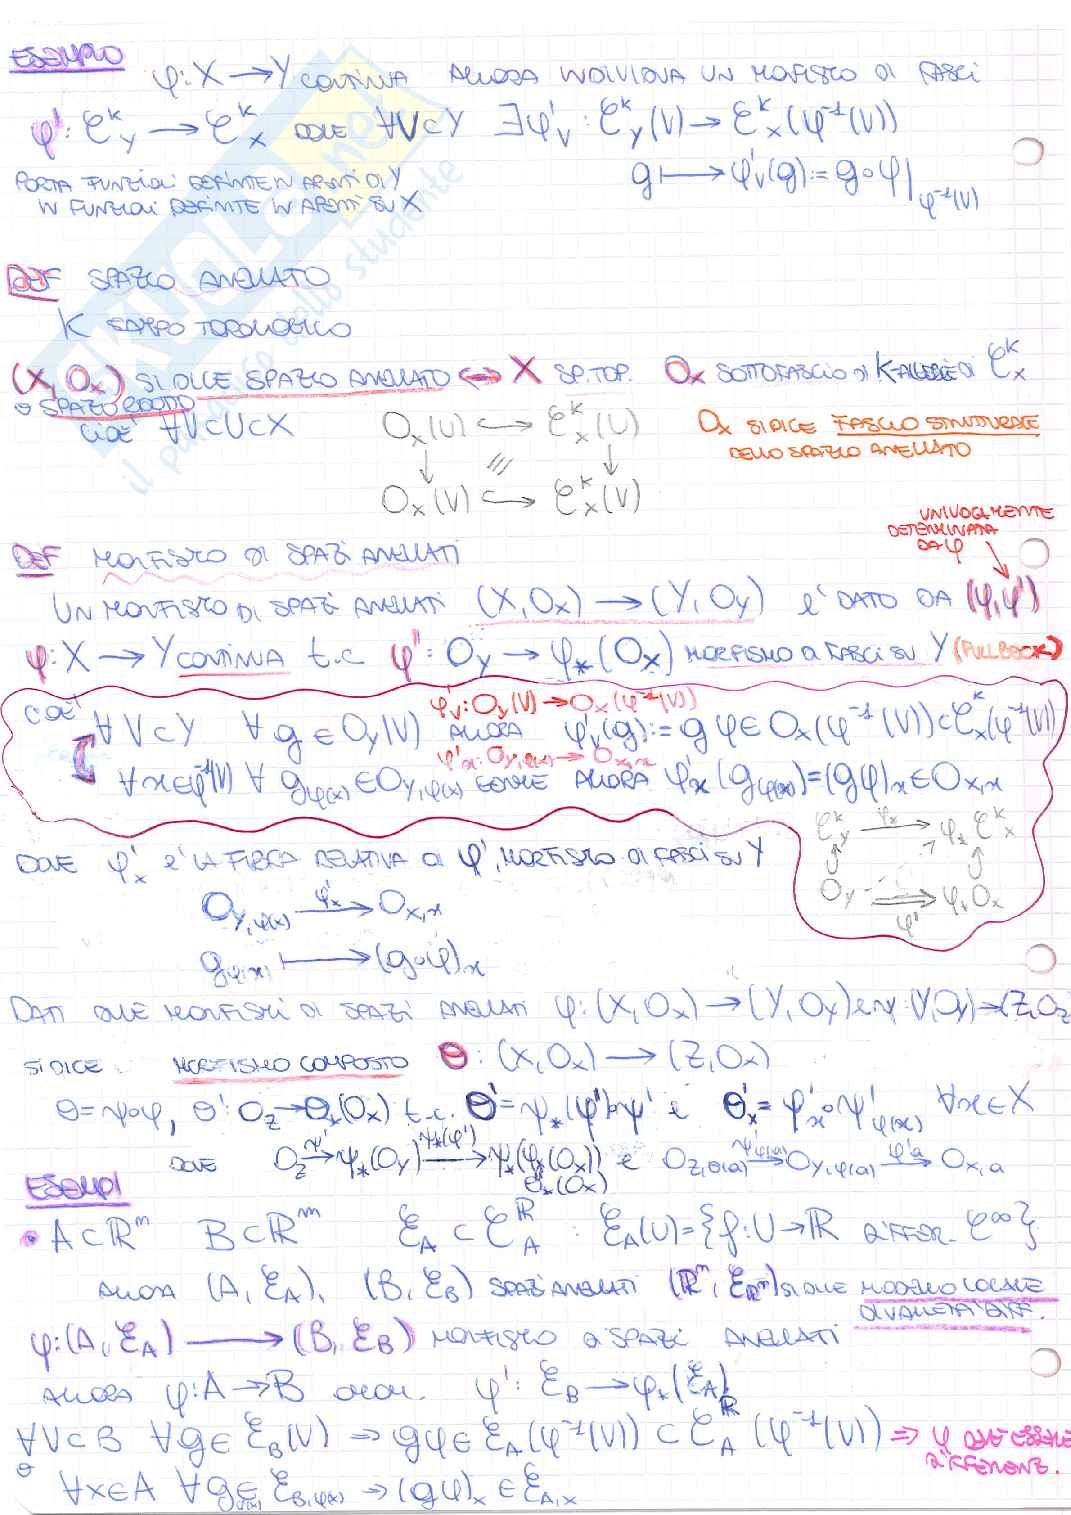 ESEMPIO
φ: X → Y CONTINUA ALLORA INDIVIDUA UN MORFISMO DI FASCI
φ': 𝒞_Y^K → 𝒞_X^K DOVE ∀V⊂Y ∃φ'_V : 𝒞_Y^K(V) → 𝒞_X^K(φ⁻¹(V))
g ↦ φ'_V(g) := g∘φ|_φ⁻¹(V)
PORTA FUNZIONI DEFINITE IN APERTI DI Y
IN FUNZIONI DEFINITE IN APERTI SU X
DEF SPAZIO ANELLATO
K CAMPO TOPOLOGICO
(X, O_X) SI DICE SPAZIO ANELLATO ⇔ X SP. TOP. O_X SOTTOFASCIO DI K-ALGEBRE DI 𝒞_X^K
o SPAZIO RIDOTTO
CIOÈ ∀V⊂U⊂X O_X(U) ↪ 𝒞_X^K(U)
O_X(V) ↪ 𝒞_X^K(V)
O_X SI DICE FASCIO STRUTTURALE
DELLO SPAZIO ANELLATO
UNIVOCAMENTE
DETERMINATA
DA φ
DEF MORFISMO DI SPAZI ANELLATI
UN MORFISMO DI SPAZI ANELLATI (X, O_X) → (Y, O_Y) E' DATO DA (φ, φ')
φ: X → Y CONTINUA t.c φ': O_Y → φ_*(O_X) MORFISMO DI FASCI SU Y (PULLBACK)
φ'_V: O_Y(V) → O_X(φ⁻¹(V))
CIOE' ∀V⊂Y ∀g∈O_Y(V) ALLORA φ'_V(g) := gφ ∈ O_X(φ⁻¹(V)) ⊂ 𝒞_X^K(φ⁻¹(V))
φ'_x: O_Y,φ(x) → O_X,x
∀x∈φ⁻¹(V) ∀ g_φ(x) ∈ O_Y,φ(x) GERME ALLORA φ'_x(g_φ(x)) = (gφ)_x ∈ O_X,x
𝒞_Y^K → φ_* 𝒞_X^K
O_Y → φ_* O_X
φ'
DOVE φ'_x E' LA FIBRA RELATIVA DI φ', MORFISMO DI FASCI SU Y
O_Y,φ(x) →φ'_x O_X,x
g_φ(x) ↦ (g∘φ)_x
DATI DUE MORFISMI DI SPAZI ANELLATI φ: (X, O_X) → (Y, O_Y) e ψ: (Y, O_Y) → (Z, O_Z)
SI DICE MORFISMO COMPOSTO Θ: (X, O_X) → (Z, O_X)
Θ = ψ∘φ, Θ': O_Z → Θ_*(O_X) t.c. Θ' = ψ_*(φ')∘ψ' e Θ'_x = φ'_x∘ψ'_φ(x) ∀x∈X
DOVE O_Z →ψ' ψ_*(O_Y) →ψ_*(φ') ψ_*(φ_*(O_X)) e O_Z,Θ(a) →ψ'φ(a) O_Y,φ(a) →φ'a O_X,a
Θ_*(O_X)
ESEMPI
• A⊂ℝⁿ B⊂ℝᵐ ℰ_A ⊂ 𝒞_A^ℝ : ℰ_A(U) = {f: U → ℝ DIFFER. 𝒞^∞}
ALLORA (A, ℰ_A), (B, ℰ_B) SPAZI ANELLATI (ℝⁿ, ℰ_ℝⁿ) SI DICE MODELLO LOCALE
DI VARIETA' DIFF.
φ: (A, ℰ_A) → (B, ℰ_B) MORFISMO DI SPAZI ANELLATI
ALLORA φ: A → B φ': ℰ_B → φ_*(ℰ_A)
∀V⊂B ∀g∈ℰ_B(V) ⇒ gφ ∈ ℰ_A(φ⁻¹(V)) ⊂ 𝒞_A^ℝ(φ⁻¹(V)) ⇒ φ DEVE ESSERE
DIFFERENZ.
o
∀x∈A ∀g_φ(x)∈ℰ_B,φ(x) ⇒ (gφ)_x ∈ ℰ_A,x
SKUOLA.net
il paradiso dello studente